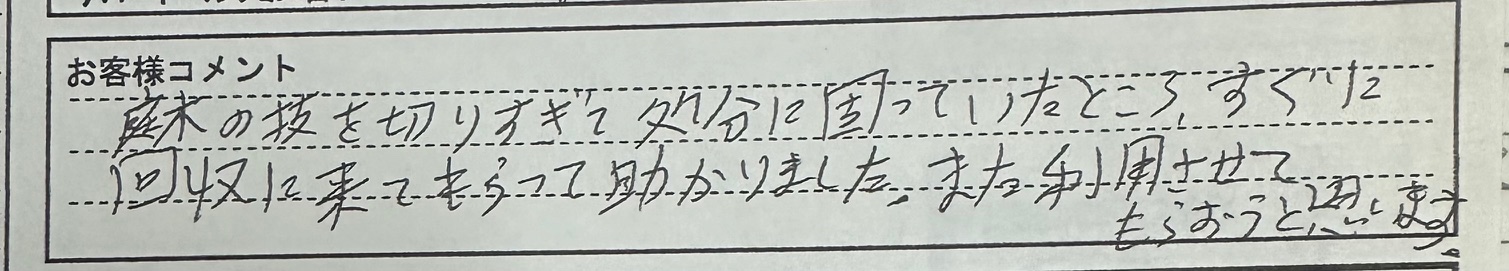 お客様コメント
庭木の枝を切りすぎて処分に困っていたところ、すぐに
回収に来てもらって助かりました。また利用させて
もらおうと思います。